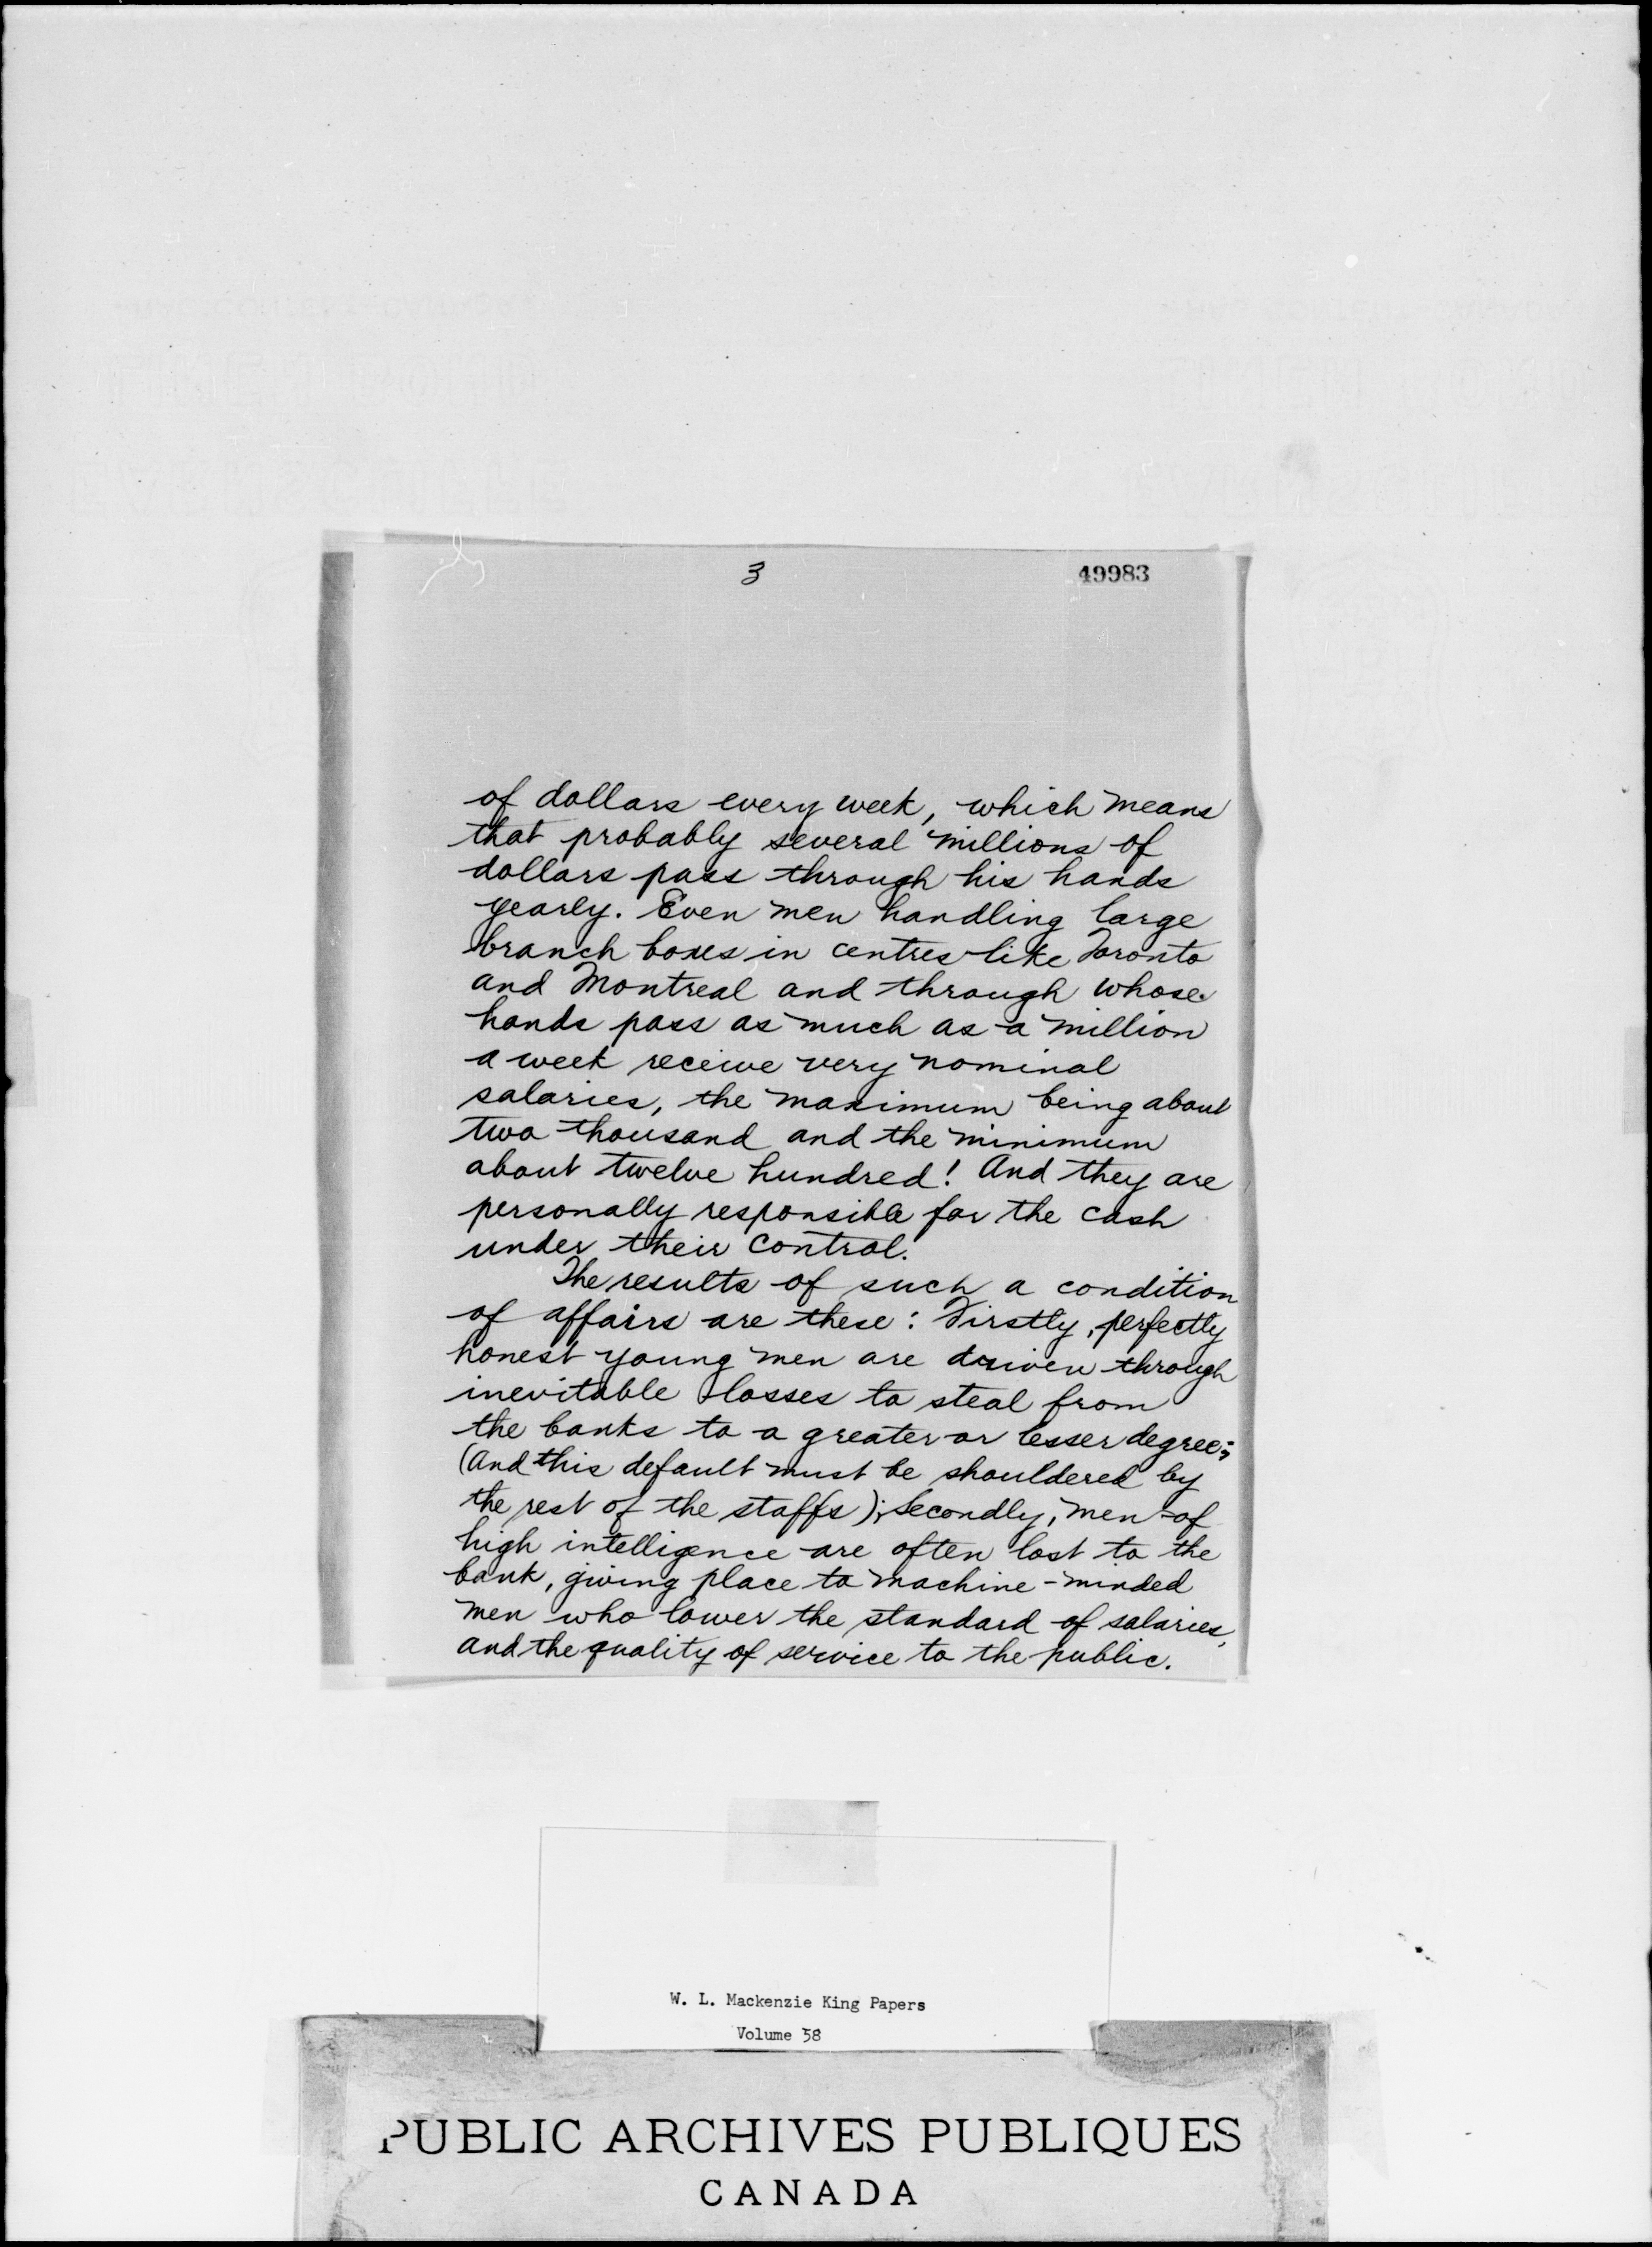 3
49983
of dollars every week, which means
that probably several millions of
dollars pass through his hands
yearly. Even men handling large
branch boxes in centres like Toronto
and Montreal and through whose
hands pass as much as a million
a week receive very nominal
salaries, the maximum being about
two thousand and the minimum
about twelve hundred! And they are
personally responsible for the cash
under their control.
The results of such a condition
of affairs are these: Firstly, perfectly
honest young men are driven through
inevitable losses to steal from
the banks to a greater or lesser degree;
(And this default must be shouldered by
the rest of the staffs); Secondly, men of
high intelligence are often lost to the
bank, giving place to machine-minded
men who lower the standard of salaries,
and the quality of service to the public.
W. L. Mackenzie King Papers
Volume 58
PUBLIC ARCHIVES PUBLIQUES
CANADA